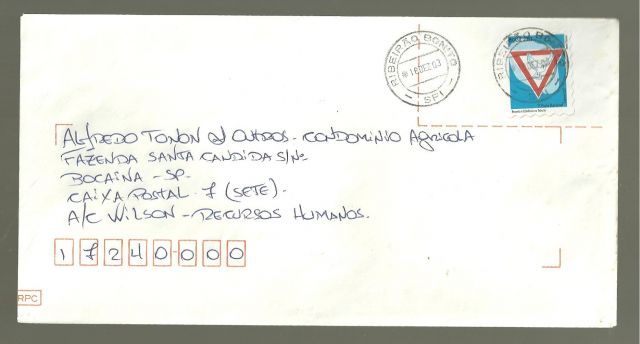 RIBEIRÃO BONITO
16 DEZ 03
SPI
RIBEIRÃO BONITO
ALFREDO TONON E OUTROS - CONDOMINIO AGRICOLA
FAZENDA SANTA CANDIDA S/Nº
BOCAINA - SP.
CAIXA POSTAL 7 (SETE).
A/C WILSON - RECURSOS HUMANOS.
17240-000
RPC